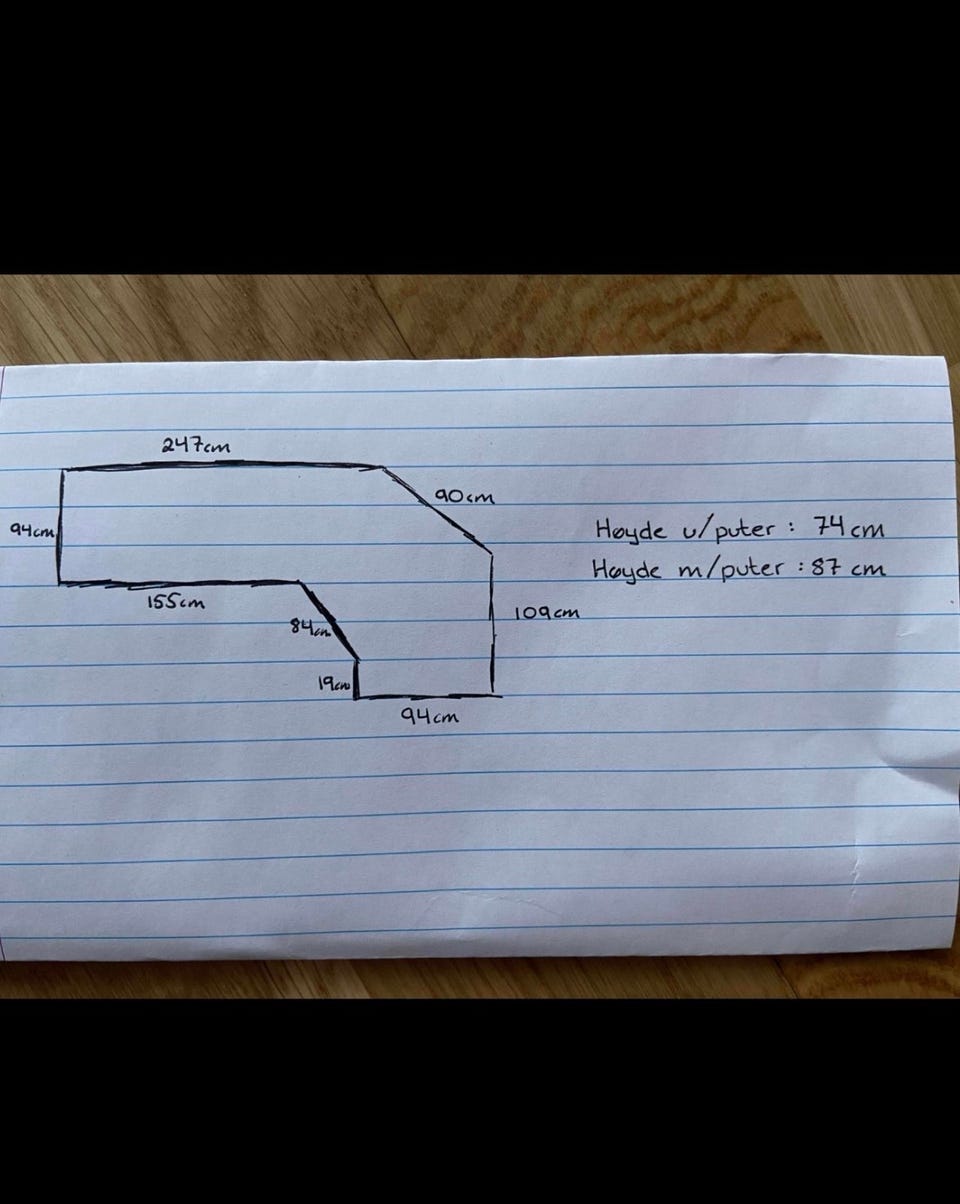 247cm
90cm
94cm
Høyde u/puter : 74cm
Høyde m/puter : 87 cm
155cm
109cm
84cm
19cm
94cm